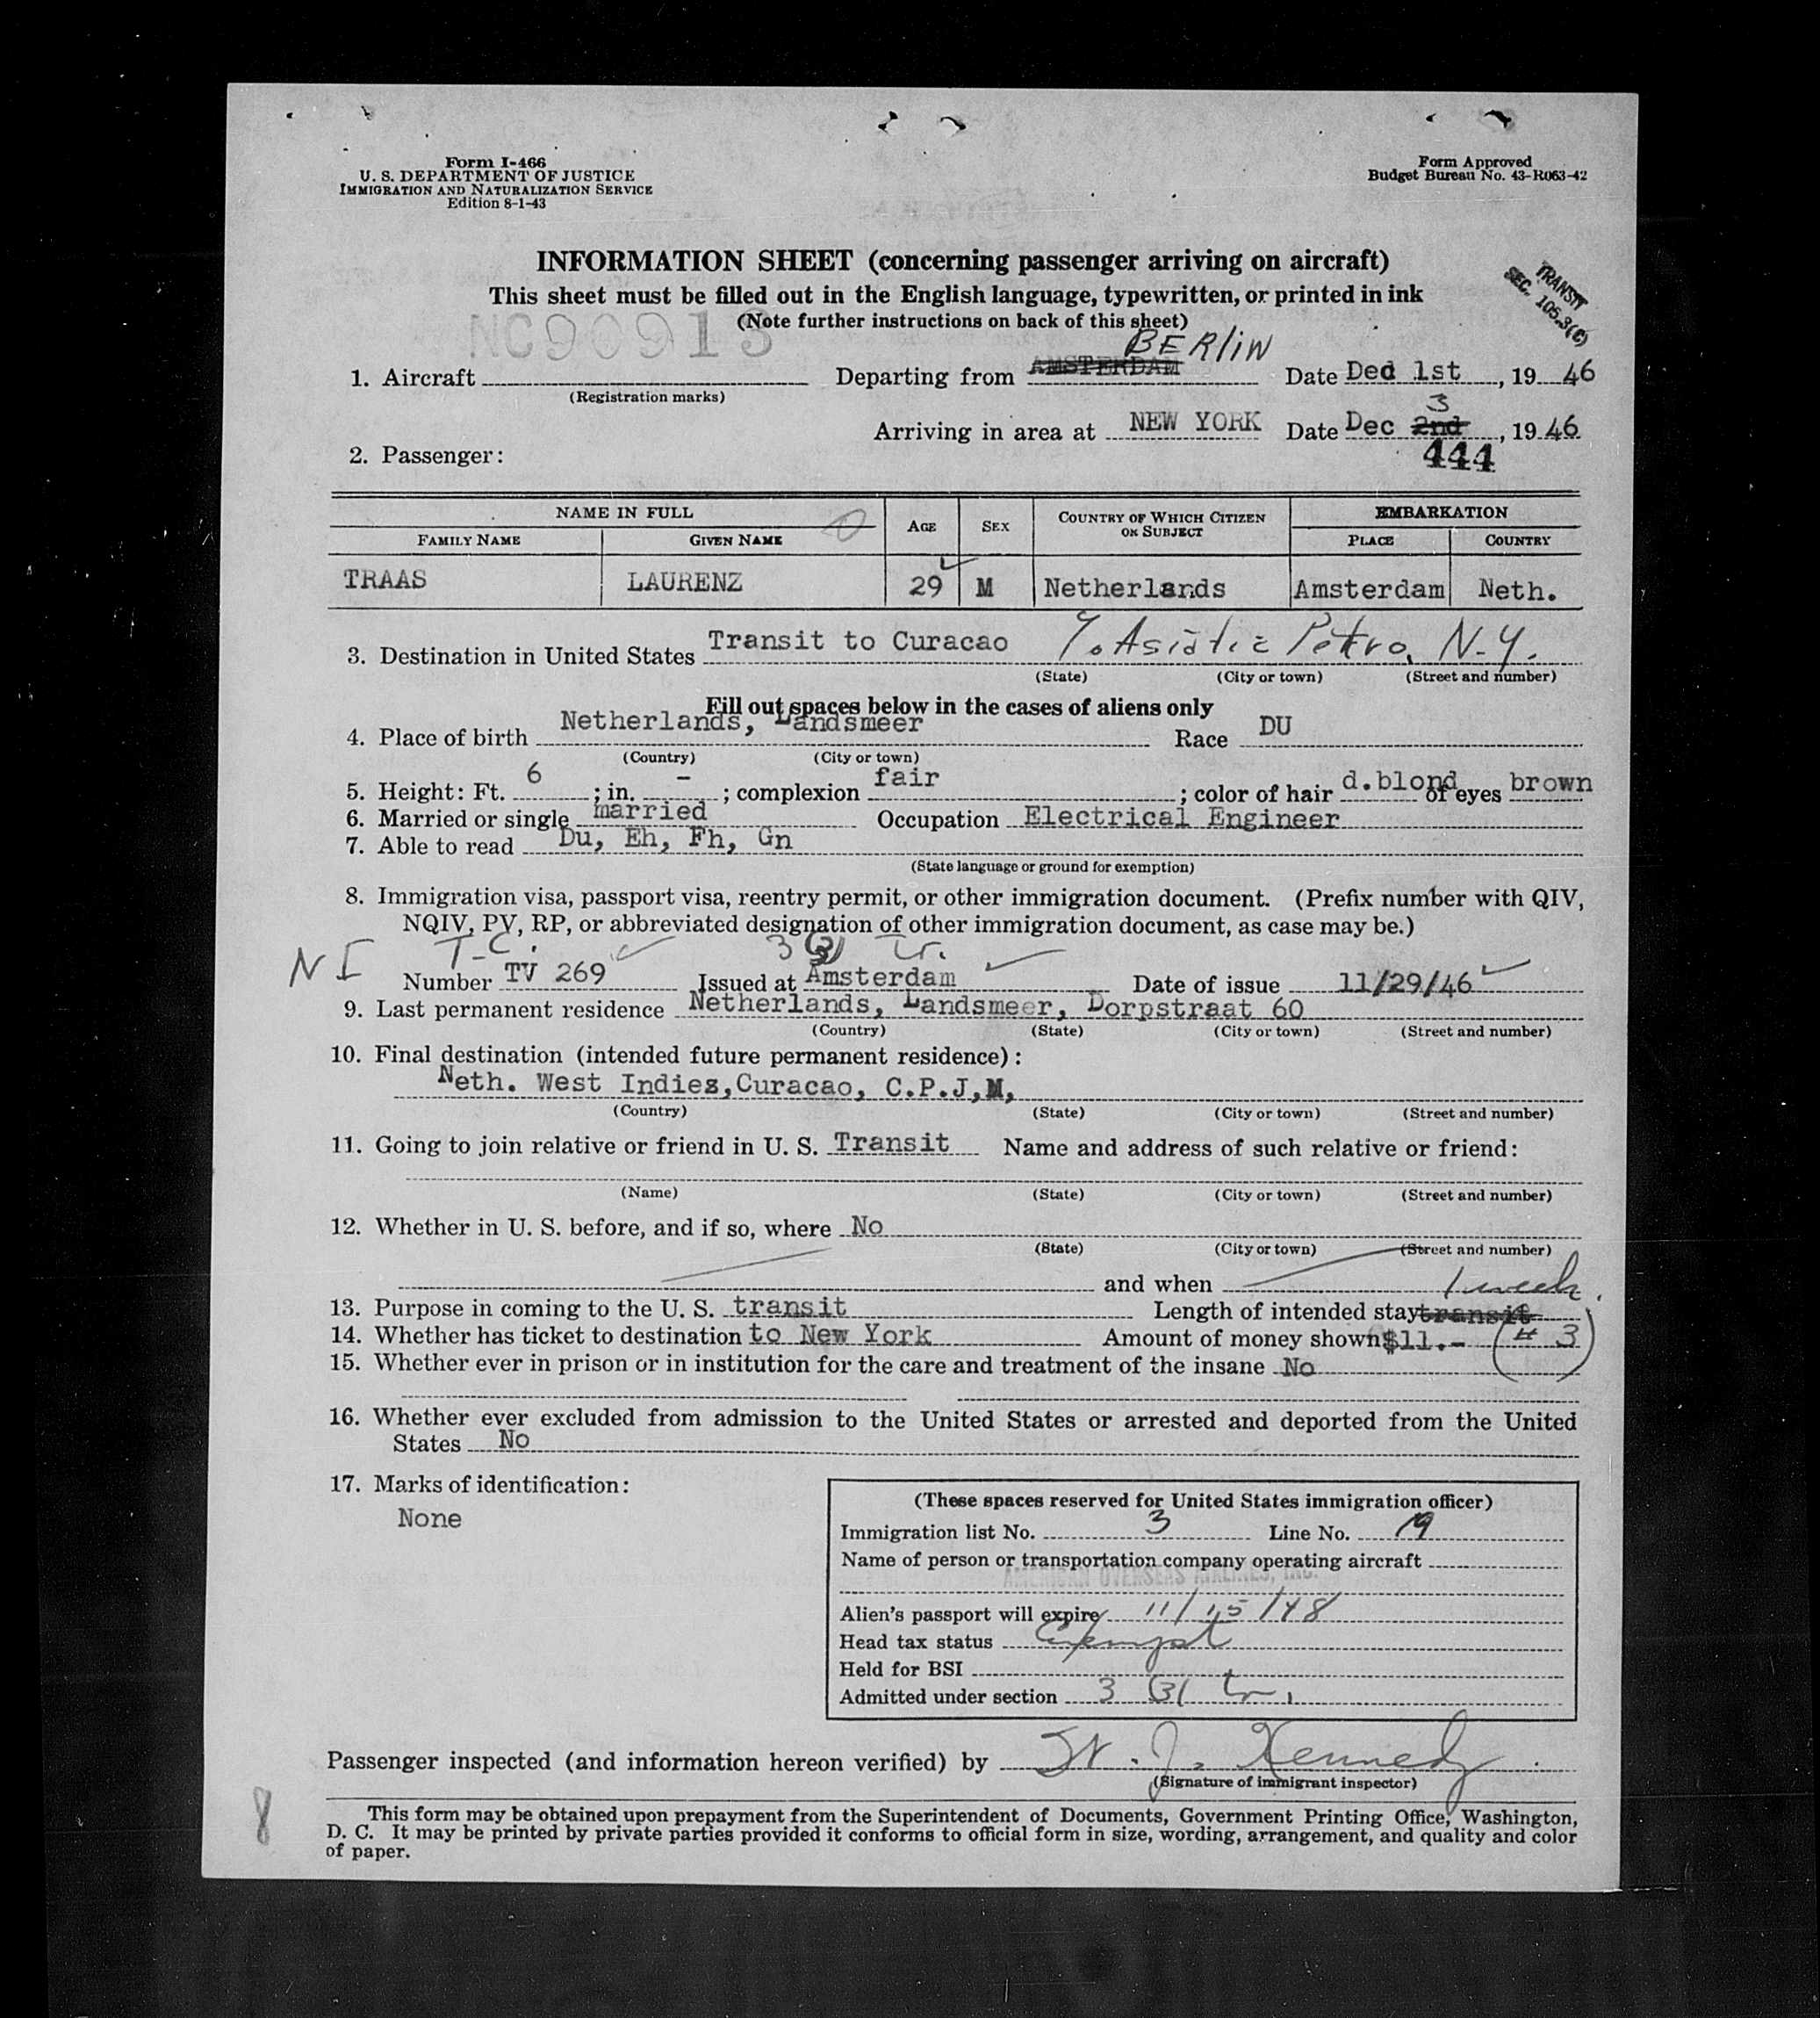 Form I-466
U. S. DEPARTMENT OF JUSTICE
IMMIGRATION AND NATURALIZATION SERVICE
Edition 8-1-43
Form Approved
Budget Bureau No. 43-R063-42
INFORMATION SHEET (concerning passenger arriving on aircraft)
This sheet must be filled out in the English language, typewritten, or printed in ink
(Note further instructions on back of this sheet)
TRANSIT
SEC. 105.3(C)
NC90913
BERLIN
1. Aircraft Departing from AMSTERDAM Date Ded 1st, 19 46
(Registration marks)
3
Arriving in area at NEW YORK Date Dec 2nd, 19 46
444
2. Passenger:
NAME IN FULL AGE SEX COUNTRY OF WHICH CITIZEN OR SUBJECT EMBARKATION
FAMILY NAME GIVEN NAME PLACE COUNTRY
TRAAS LAURENZ 29 M Netherlands Amsterdam Neth.
3. Destination in United States Transit to Curacao Asiatic Petro, N.Y.
(State) (City or town) (Street and number)
Fill out spaces below in the cases of aliens only
4. Place of birth Netherlands, Landsmeer Race DU
(Country) (City or town)
5. Height: Ft. 6 ; in. - ; complexion fair ; color of hair d.blond of eyes brown
6. Married or single married Occupation Electrical Engineer
7. Able to read Du, Eh, Fh, Gn
(State language or ground for exemption)
8. Immigration visa, passport visa, reentry permit, or other immigration document. (Prefix number with QIV,
NQIV, PV, RP, or abbreviated designation of other immigration document, as case may be.)
NI T-C. 3 (3) tr.
Number TV 269 Issued at Amsterdam Date of issue 11/29/46
9. Last permanent residence Netherlands, Landsmeer, Dorpstraat 60
(Country) (State) (City or town) (Street and number)
10. Final destination (intended future permanent residence):
Neth. West Indies,Curacao, C.P.J,M,
(Country) (State) (City or town) (Street and number)
11. Going to join relative or friend in U. S. Transit Name and address of such relative or friend:
(Name) (State) (City or town) (Street and number)
12. Whether in U. S. before, and if so, where No
(State) (City or town) (Street and number)
and when
1 week.
13. Purpose in coming to the U. S. transit Length of intended stay transit
14. Whether has ticket to destination to New York Amount of money shown $11.- (# 3)
15. Whether ever in prison or in institution for the care and treatment of the insane No
16. Whether ever excluded from admission to the United States or arrested and deported from the United
States No
17. Marks of identification:
None
(These spaces reserved for United States immigration officer)
Immigration list No. 3 Line No. 19
Name of person or transportation company operating aircraft
AMERICAN OVERSEAS AIRLINES, INC.
Alien's passport will expire 11/15/48
Head tax status Exempt
Held for BSI
Admitted under section 3 (3) tr.
Passenger inspected (and information hereon verified) by W. J. Kennedy
(Signature of immigrant inspector)
8
This form may be obtained upon prepayment from the Superintendent of Documents, Government Printing Office, Washington,
D. C. It may be printed by private parties provided it conforms to official form in size, wording, arrangement, and quality and color
of paper.